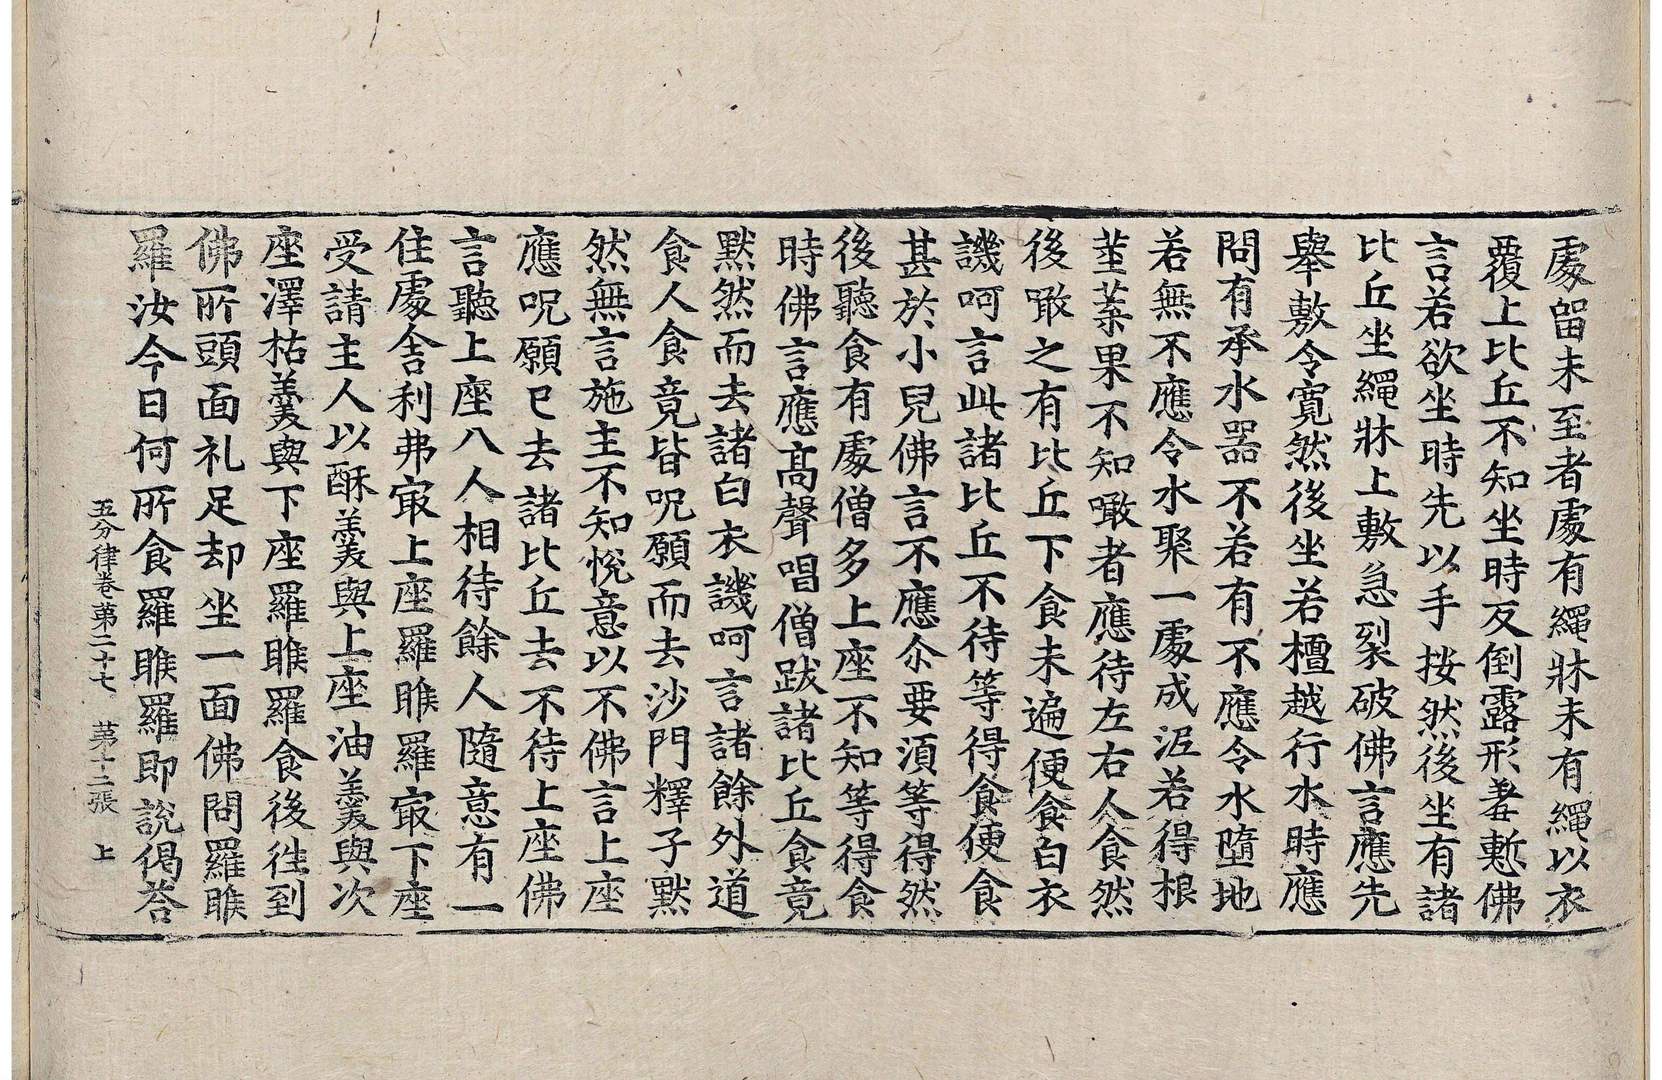 處留未至者處有繩牀未有繩以衣
覆上比丘不知坐時反倒露形羞慙佛
言若欲坐時先以手按然後坐有諸
比丘坐繩牀上敷急裂破佛言應先
舉敷令寬然後坐若檀越行水時應
問有承水器不若有不應令水墮地
若無不應令水聚一處成泥若得根
莖葉果不知噉者應待左右人食然
後噉之有比丘下食未遍便食白衣
譏呵言此諸比丘不待等得食便食
甚於小兒佛言不應尒要湏等得然
後聽食有處僧多上座不知等得食
時佛言應髙聲唱僧跋諸比丘食竟
默然而去諸白衣譏呵言諸餘外道
食人食竟皆呪願而去沙門釋子默
然無言施主不知悅意以不佛言上座
應呪願已去諸比丘去不待上座佛
言聽上座八人相待餘人隨意有一
住處舍利弗㝡上座羅睺羅㝡下座
受請主人以酥羹與上座油羹與次
座澤枯羹與下座羅睺羅食後徃到
佛所頭面礼足却坐一面佛問羅睺
羅汝今日何所食羅睺羅即說偈荅
五分律卷第二十七 第十二張 上